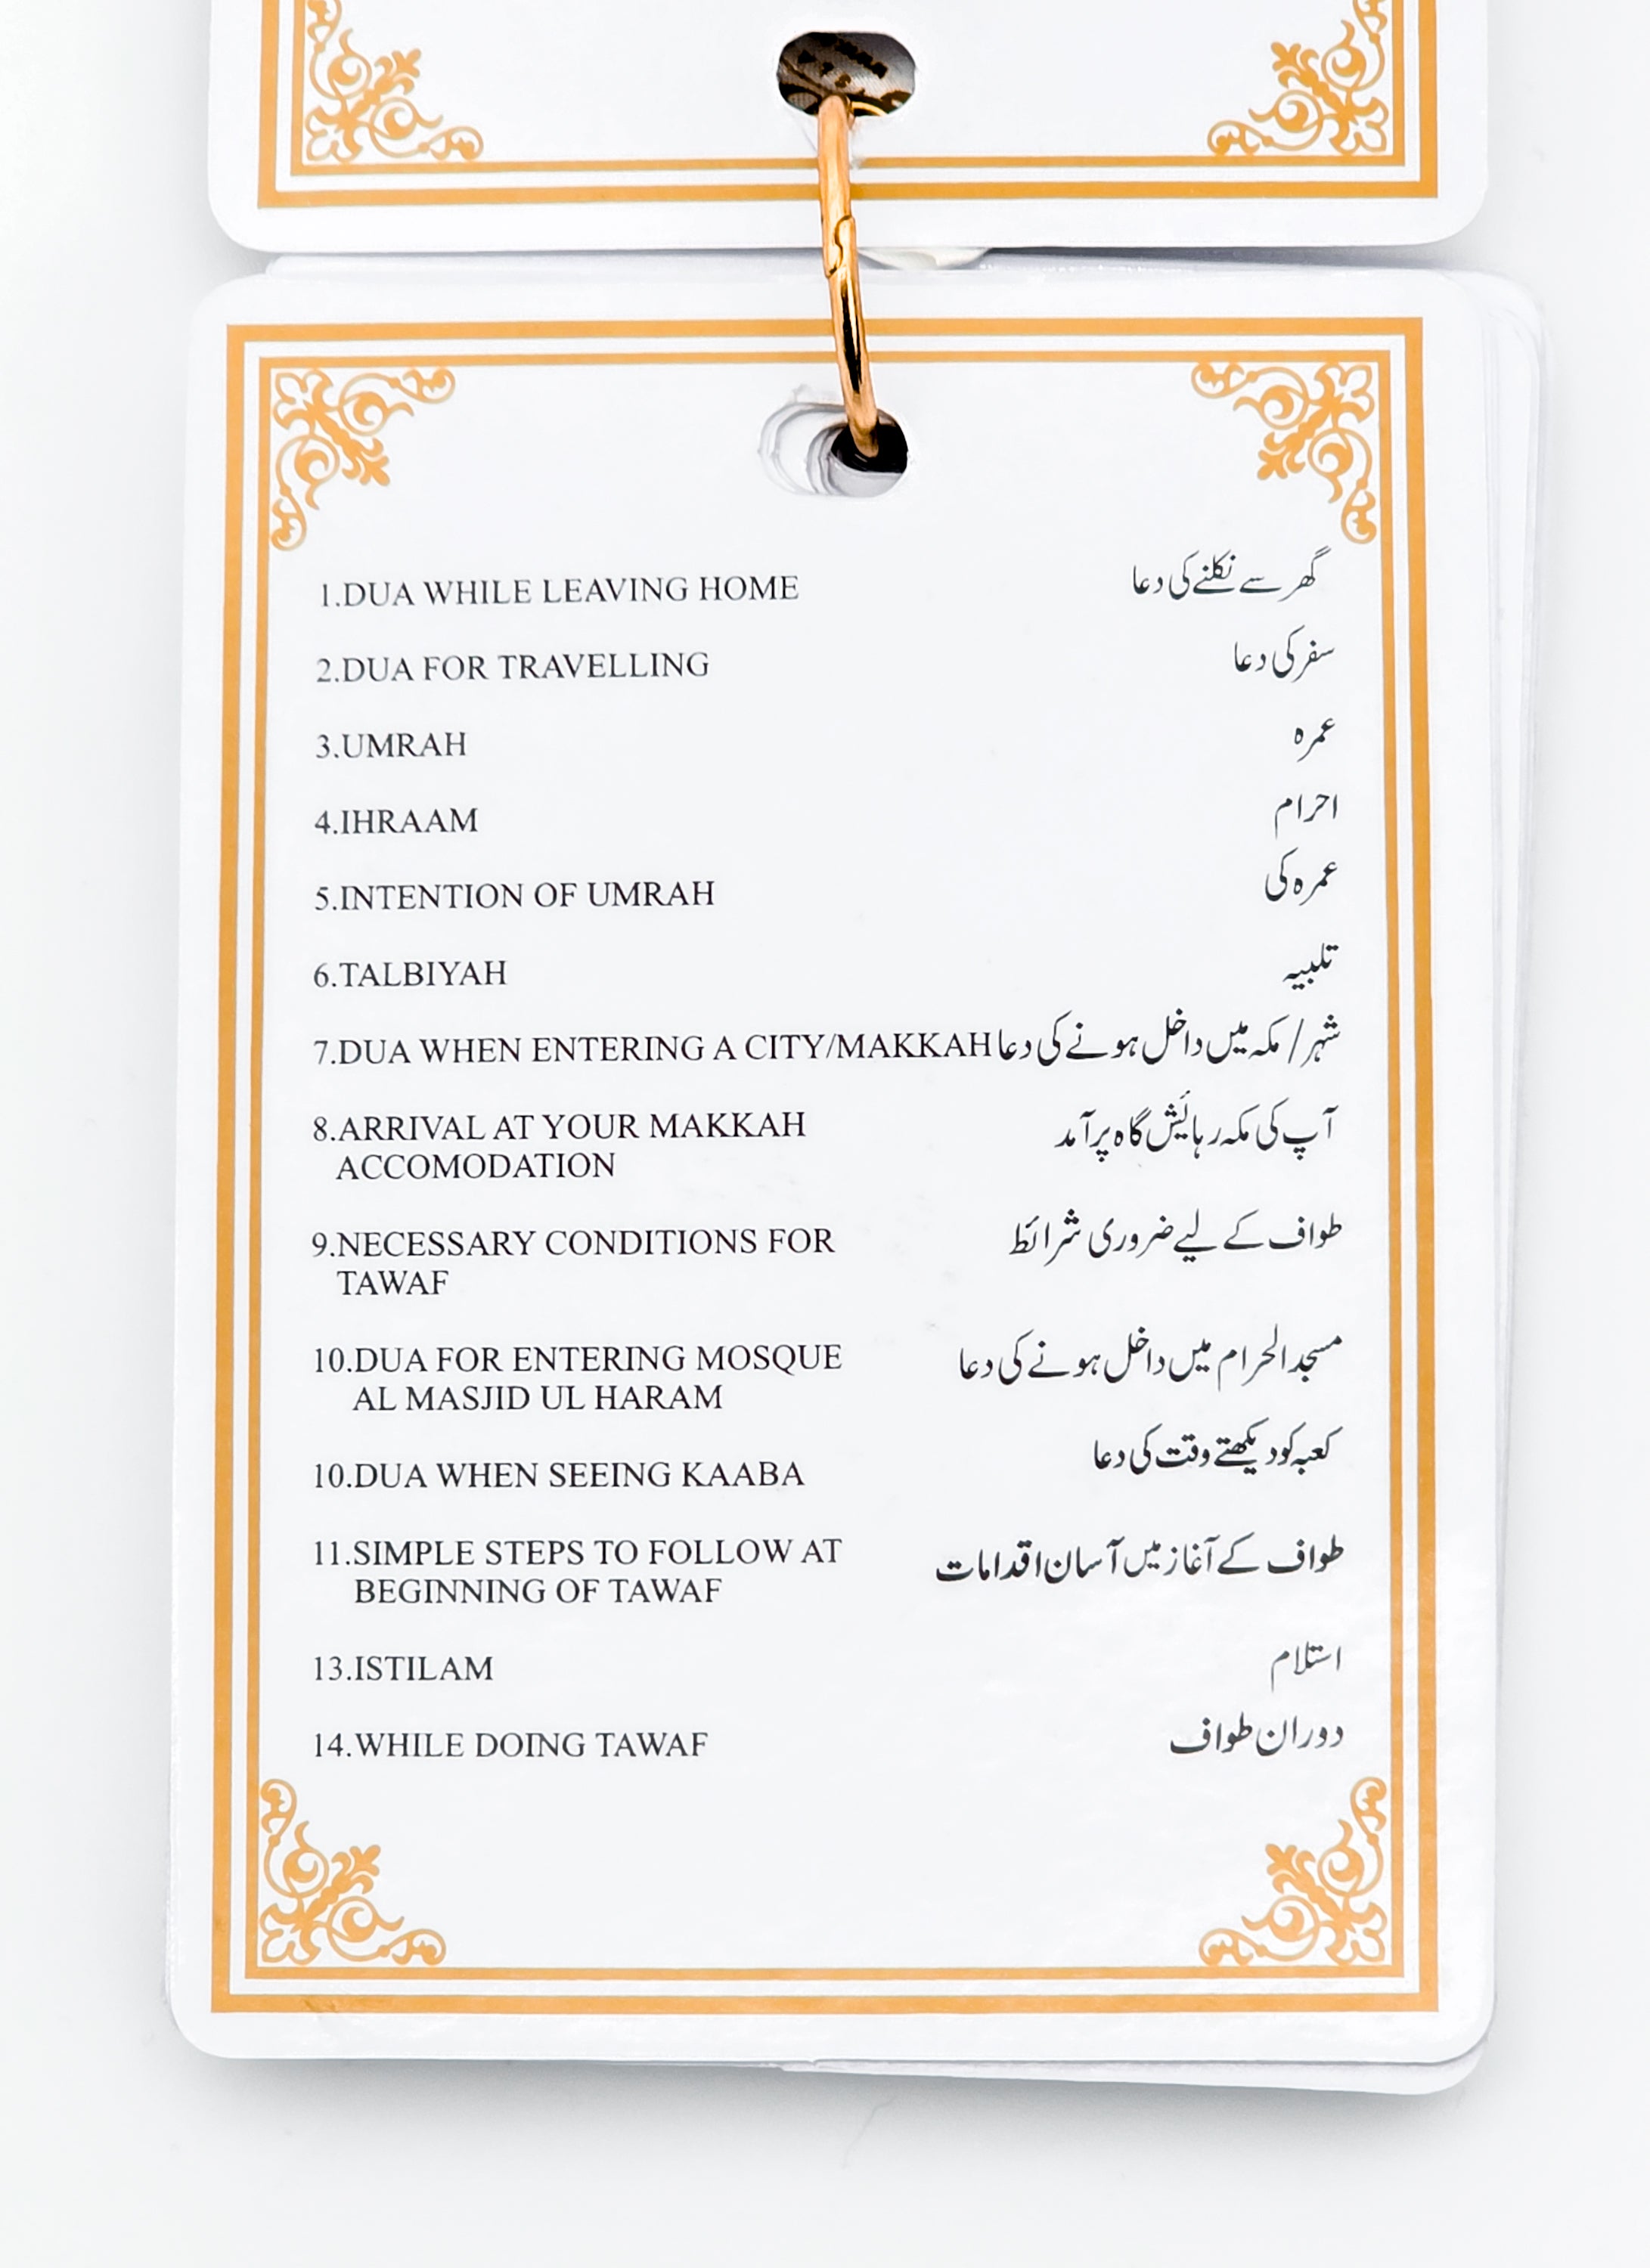 1.DUA WHILE LEAVING HOME گھر سے نکلنے کی دعا
2.DUA FOR TRAVELLING سفر کی دعا
3.UMRAH عمرہ
4.IHRAAM احرام
5.INTENTION OF UMRAH عمرہ کی
6.TALBIYAH تلبیہ
7.DUA WHEN ENTERING A CITY/MAKKAH شہر/ مکہ میں داخل ہونے کی دعا
8.ARRIVAL AT YOUR MAKKAH آپ کی مکہ رہائش گاہ پر آمد
ACCOMODATION
9.NECESSARY CONDITIONS FOR طواف کے لیے ضروری شرائط
TAWAF
10.DUA FOR ENTERING MOSQUE مسجد الحرام میں داخل ہونے کی دعا
AL MASJID UL HARAM
10.DUA WHEN SEEING KAABA کعبہ کو دیکھتے وقت کی دعا
11.SIMPLE STEPS TO FOLLOW AT طواف کے آغاز میں آسان اقدامات
BEGINNING OF TAWAF
13.ISTILAM استلام
14.WHILE DOING TAWAF دوران طواف